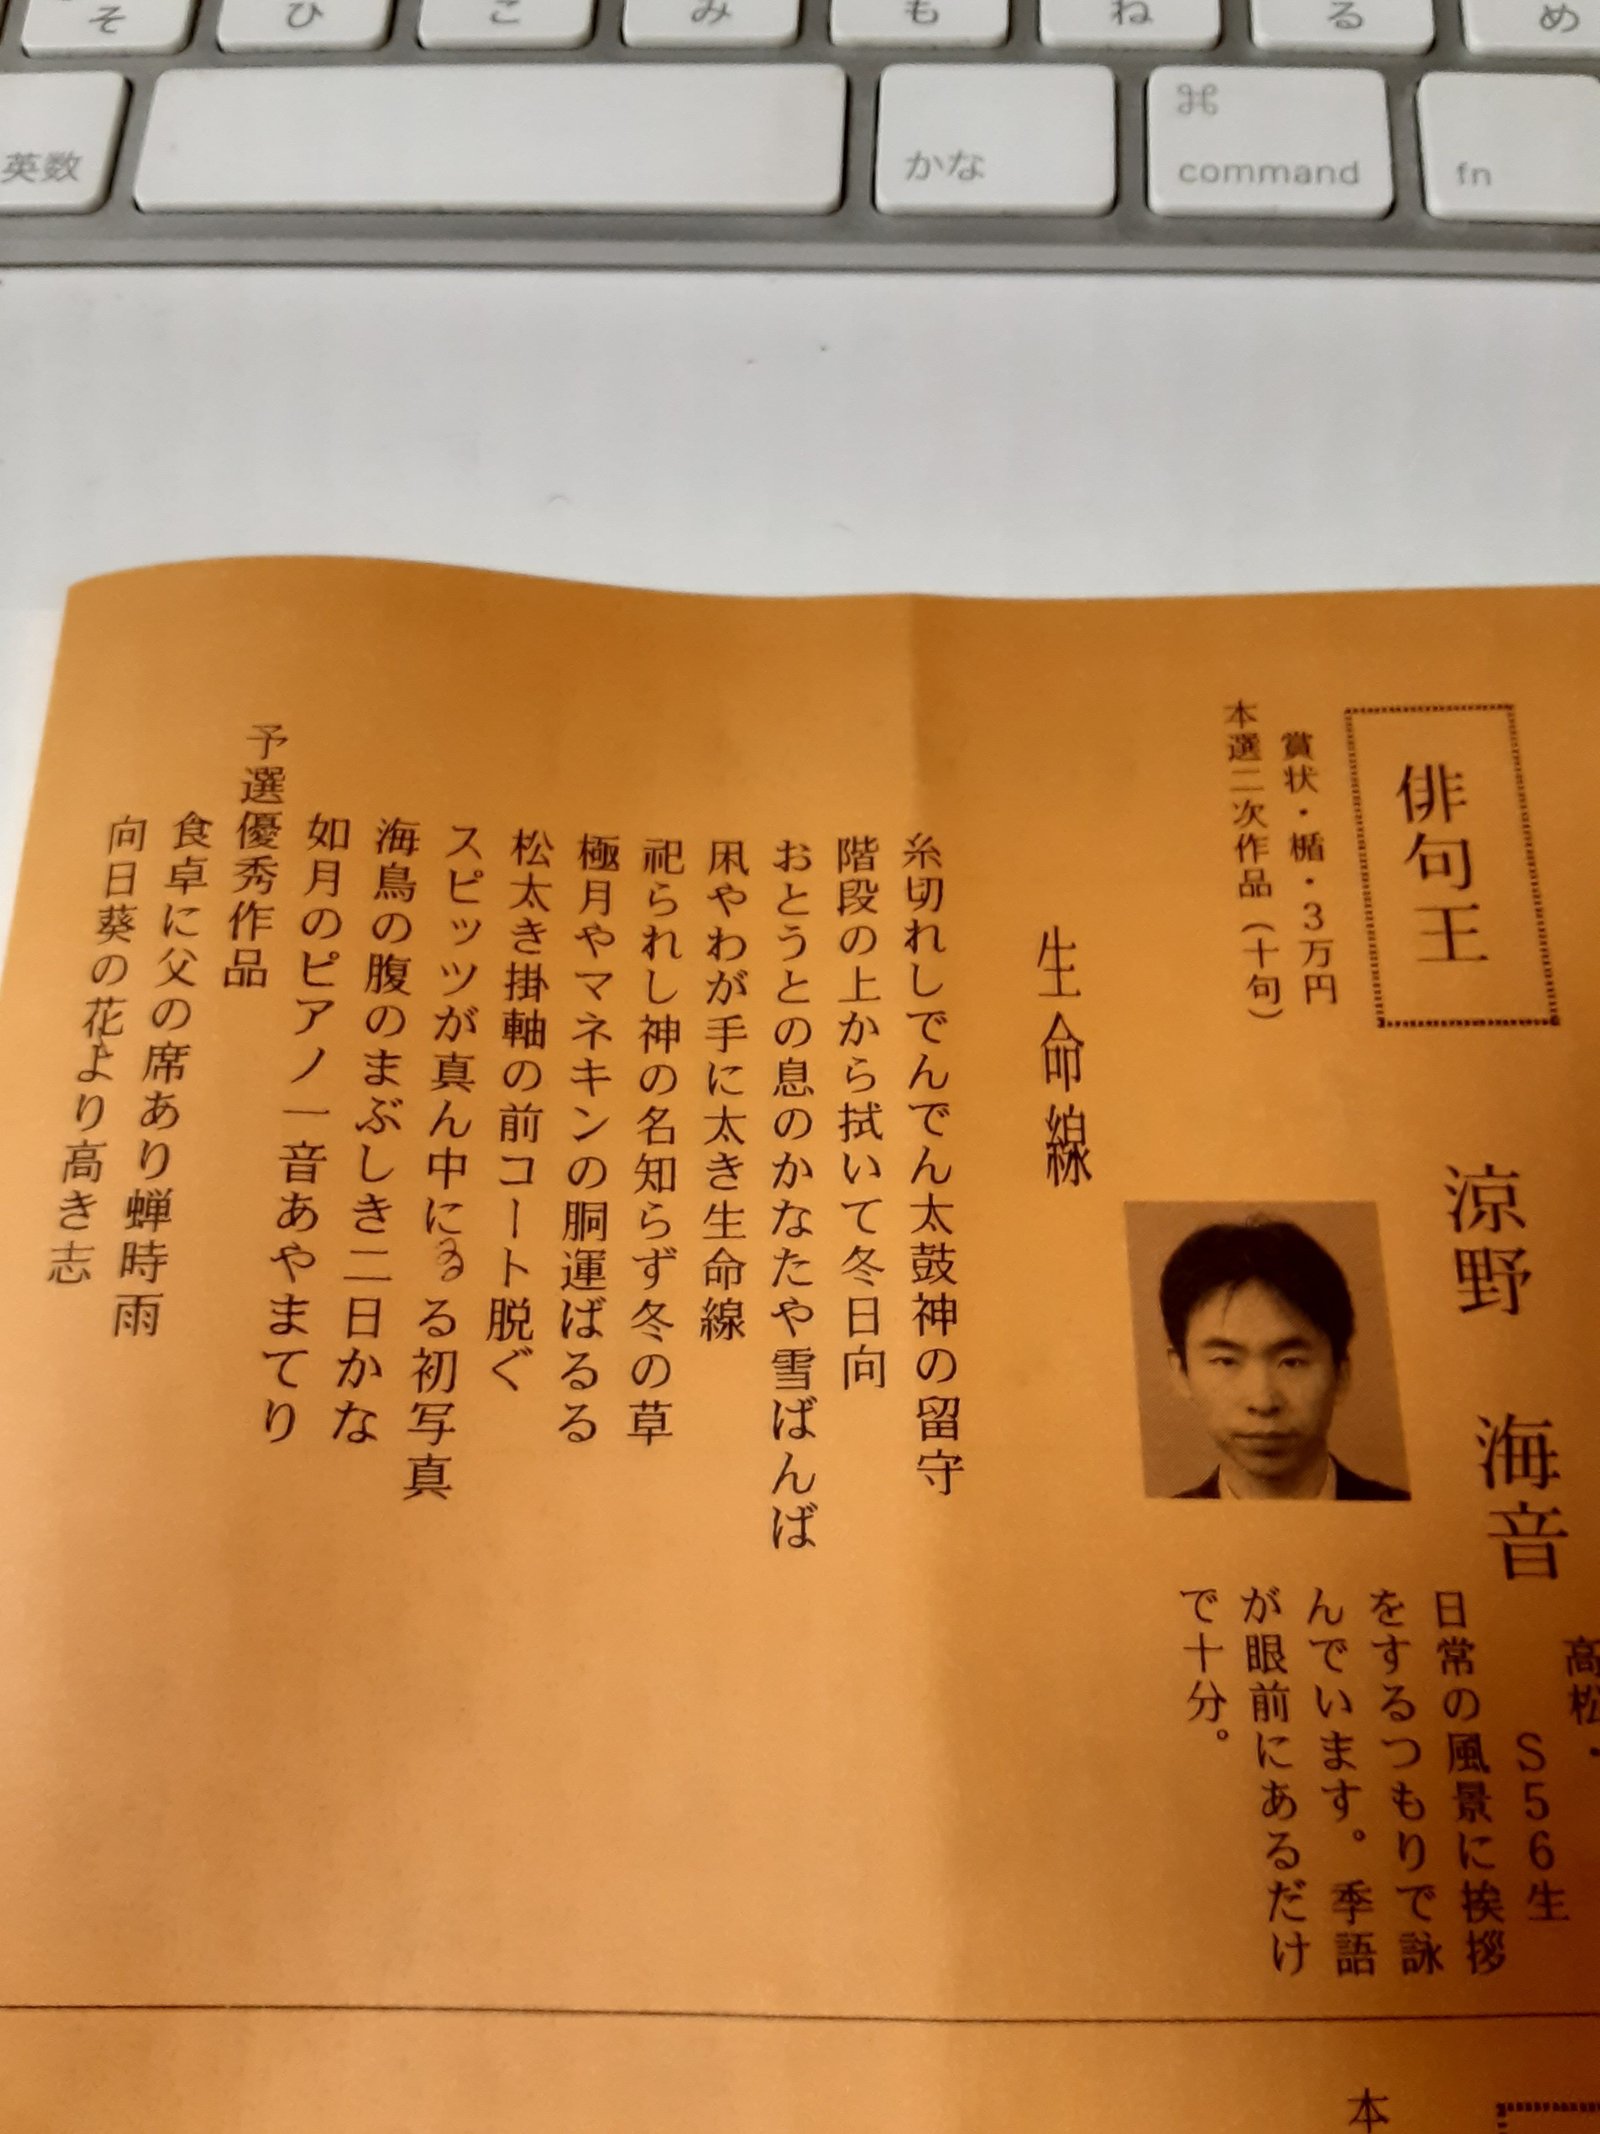 そ ひ こ み も ね る め
英数 かな ⌘ command fn
俳句王
賞状・楯・3万円
本選二次作品（十句）
涼野 海音
高松・
S56生
日常の風景に挨拶
をするつもりで詠
んでいます。季語
が眼前にあるだけ
で十分。
生命線
糸切れしでんでん太鼓神の留守
階段の上から拭いて冬日向
おとうとの息のかなたや雪ばんば
凩やわが手に太き生命線
祀られし神の名知らず冬の草
極月やマネキンの胴運ばるる
松太き掛軸の前コート脱ぐ
スピッツが真ん中にゐる初写真
海鳥の腹のまぶしき二日かな
如月のピアノ一音あやまてり
予選優秀作品
食卓に父の席あり蝉時雨
向日葵の花より高き志
本